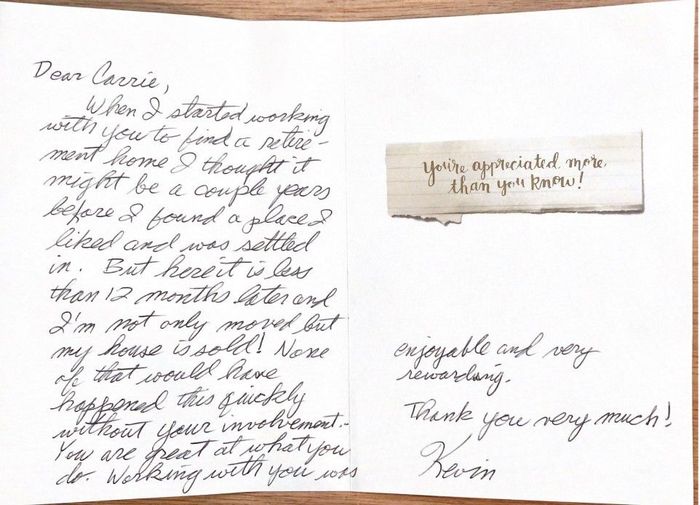 Dear Carrie,
When I started working
with you to find a retire-
ment home I thought it
might be a couple years
before I found a place I
liked and was settled
in. But here it is less
than 12 months later and
I'm not only moved but
my house is sold! None
of that would have
happened this quickly
without your involvement.
You are great at what you
do. Working with you was
You're appreciated more
than you know!
enjoyable and very
rewarding.
Thank you very much!
Kevin